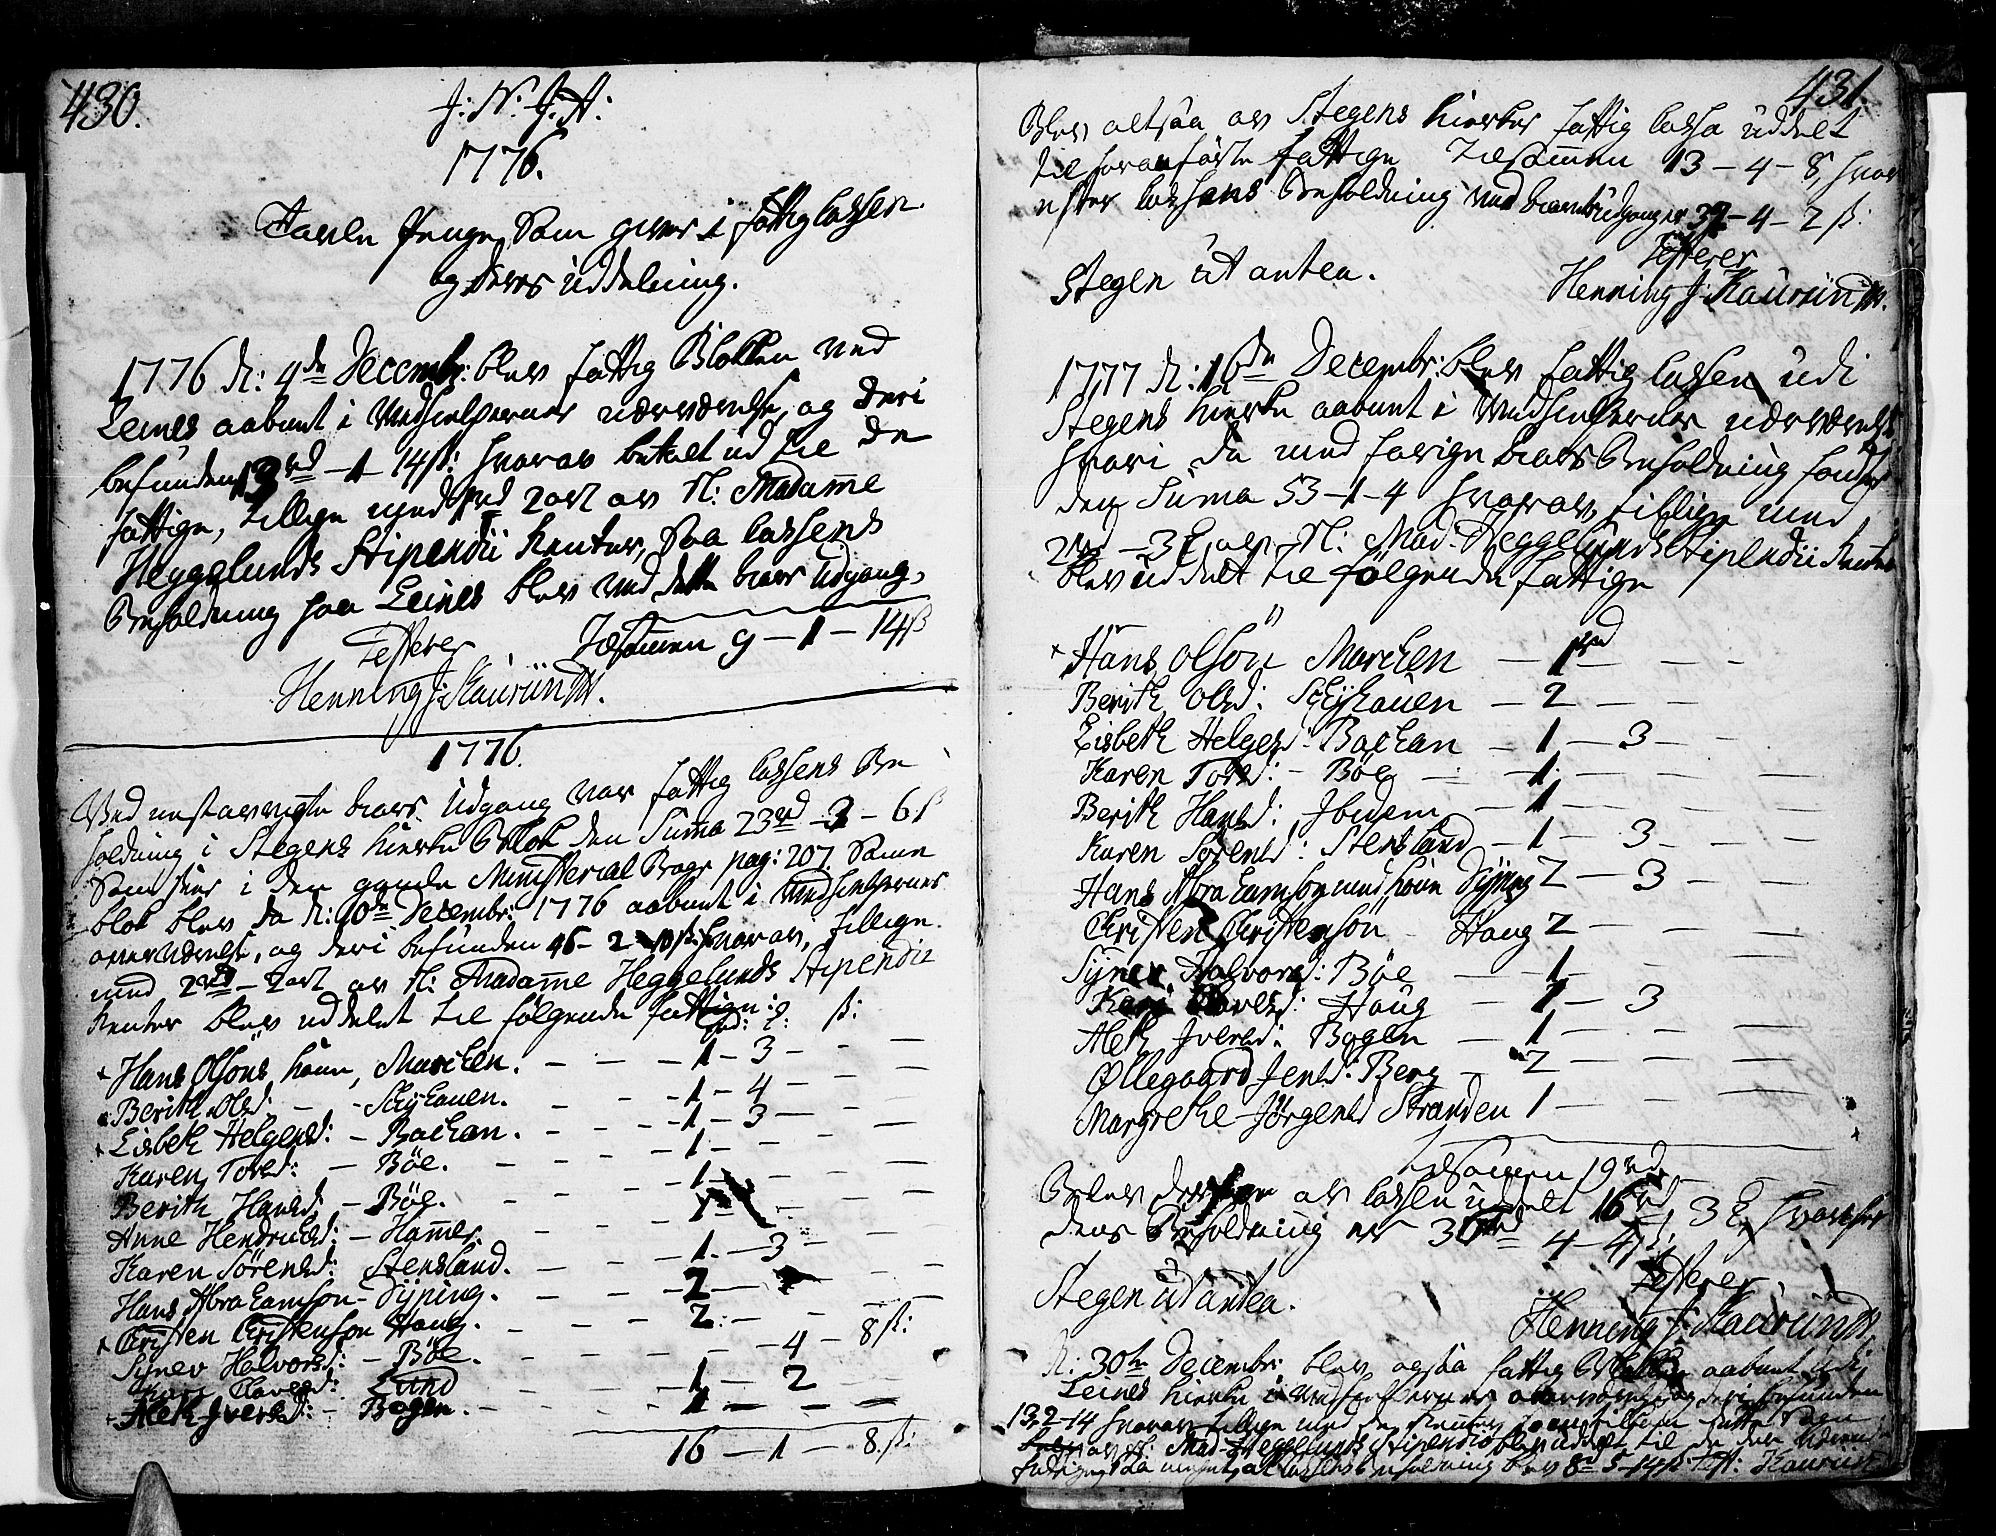 430.
J: N: J: A:
1776.
Tavle Penge, Som gives i fattig Cassen
og deres uddelning.
1776 d: 4de Decembr: blev fattig Blokken ved
Leines aabnet i Medhielpernes nærværelse, og deri
befunden 13 rd - 1 - 14 ß: hvorav betalt ud til de
fattige, tillige med rd 2 ort av Sl: Madame
Heggelunds Stipendii Renter, saa Cassens
Beholdning paa Leines blev ved dette Aars Udgang,
Testerer Tilsammen 9 - 1 - 14 ß
Henning J: Kaurin
1776.
Ved nestavvigte Aars Udgang var fattig Cassens Be
holdning i Stegens Kierke Blok den Suma 23 rd - 3 - 6 ß
Som sees i den gamle Ministerial Bog pag: 207 Samme
blok blev da d: 10de Decembr: 1776 aabnet i Medhielpernes
overværelse, og deri befunden 46 - 2 - 10 ß: hvorav, tillige
med 2 rd - 2 ort av Sl: Madame Heggelunds Stipendii
Renter blev uddelet til følgende fattige:
rd: ß:
Hans Olsøns Kone, Marchen. - 1 - 3 -
Berith Olsd: - Skykauen. - 1 - 4 -
Lisbeth Helgesd: - Bachan. - 1 - 3 -
Karen Torsd: - Böe. - 1 -
Berith Hansd: - Böe. - 1 -
Anne Hendrichsd: - Hammer. - 1 -
Karen Sørensd: Stensland. - 1 - 3 -
Hans Abrahamsøn - Dyping. - 2 -
Christen Christensøn Haug. - 2 -
Synev Halvorsd: - Böe. - 4 - 8 ß:
Kari Olavesd: Lund - 1 - 2
Aleth Iversd: - Bogen. - 1 -
16 - 1 - 8 ß:
431.
Blev altsaa av Stegens Kierkes fattig Cassa uddelt
til foranførte fattige tilsammen 13 - 4 - 8, hvor
efter Cassens Beholdning ved Aarets Udgang er 32 - 4 - 2 ß:
Testerer
Stegen ut antea. Henning J: Kaurin
1777 d: 16de Decembr: blev fattig Cassen udi
Stegens Kierke aabnet i Medhielpernes nærværelse
hvori da med forige Aars Beholdning fandtes
den Suma 53 - 1 - 4 hvorav, tillige med
2 rd - 3 av Sl: Mad. Heggelunds Stipendii Renter
blev uddelt til følgende fattige
Hans Olsøn Marchen - 1 rd -
Berith Olsd: Skykauen - 2 -
Lisbeth Helgesd: Bachan - 1 - 3 -
Karen Torsd: - Böe - 1 -
Berith Hansd: Ibidem - 1 -
Karen Sørensd: Stensland - 1 - 3 -
Hans Abrahamsøn med Kone Dyping 2 - 3 -
Christen Christensøn Haug 2 -
Synev Halvorsd: Böe - 1 -
Kari Olavesd: Haug - 1 - 3
Aleth Iversd: Bogen - 1 -
Ollegaard Jensd: Berg - 2 -
Margrethe Jørgensd Stranden 1 -
Tilsammen 19 rd
Blev av Cassen uddelt 16 rd, 3 hvorefter
dens Beholdning er 36 rd 4 - 4 ß;
Testerer
Stegen ut antea. Henning J: Kaurin
d: 30te Decembr: blev ogsaa fattig Blokken aabnet udi
Leines Kierke i Medhielpernes overværelse, og deri befunden
13, 2 - 14 hvorav tillige med
av Sl: Mad. Heggelunds Stipendio blev uddelt til de
fattige, saa Cassens Beholdning blev 8 rd 5 - 14 ß: Test: Kaurin